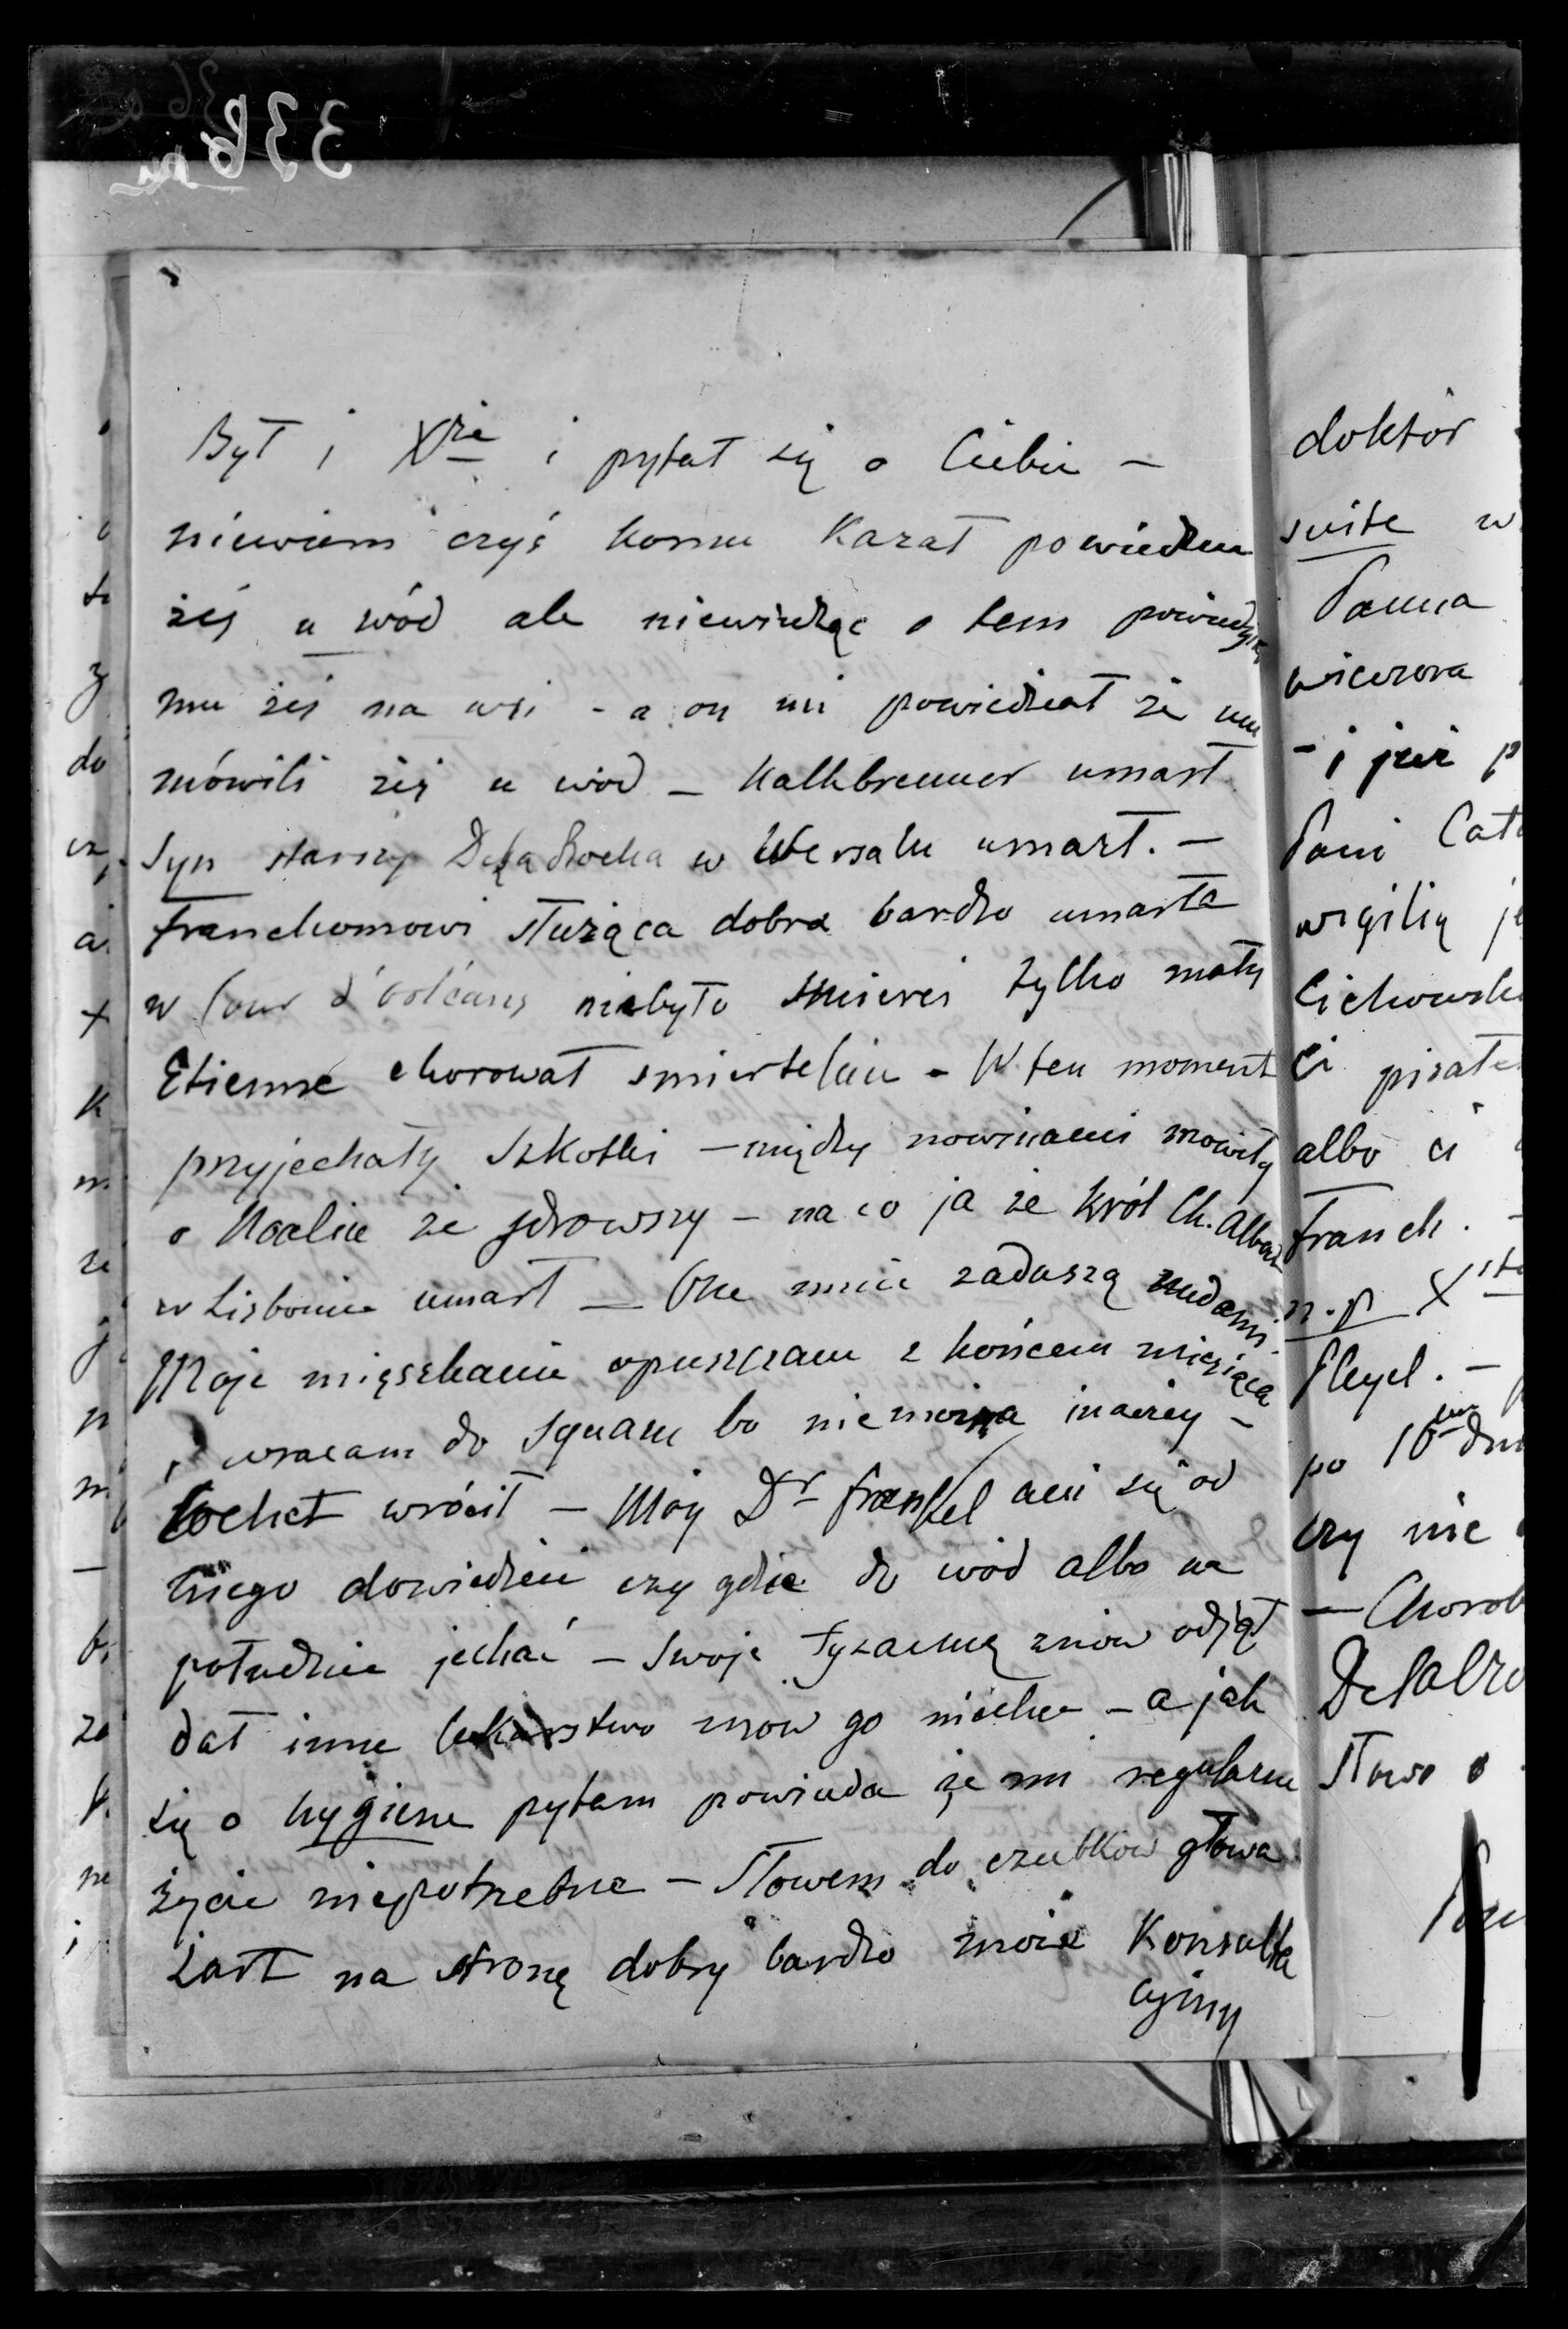 336
Był i Xże i pytał się o Ciebie –
niewiem czyś komu Kazał powiedzieć
żeś u wód ale niewiedząc o tem powiedz
mu żeś na wsi – a on mi powiedział że mu
mówili żeś u wód – Kalkbrenner umarł
Syn starszy DelaRocha w Wersalu umarł. –
Franchomowi służąca dobra bardzo umarła
w Cour d'Orléans niebyło śmierci tylko mały
Etienne chorował śmiertelnie – W ten moment
przyjechały Szkotki – między nowinami mowiły
o Noalie że zdrowszy – na co ja że Król Ch. Albert
w Lizbonie umarł – One mnie zaduszą nudami.
Moje mięszkanie opuszczam z końcem miesiąca
i wracam do Squaru bo niemożna inaczej –
Cochet wrócił – Mój Dr Frænkel ani się od
niego dowiedzieć czy gdzie do wód albo na
południe jechać – Swoje tyzannę znow odjął
dał inne lekarstwo znow go niechce – a jak
się o hygienę pytam powiada że mi regularne
życie niepotrzebne – Słowem do czubków głowa
Żart na stronę dobry bardzo może Konsulta
cyjny
doktór
suite w
Panna
wieczora
– i już p
Pani Cat
wigilią je
Cichowsk
Ci pisałe
albo ci
Franch. –
n.p Xste
Pleyel. –
po 10
czy nie
– Chorob
Delacro
słowo o